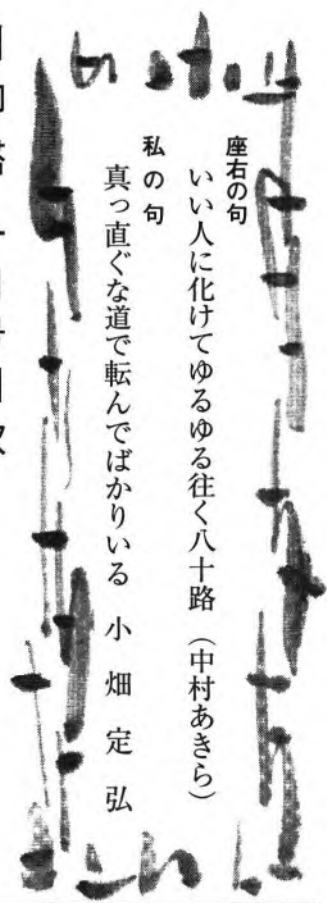 座右の句
いい人に化けてゆるゆる往く八十路 （中村あきら）
私の句
真っ直ぐな道で転んでばかりいる 小畑定弘